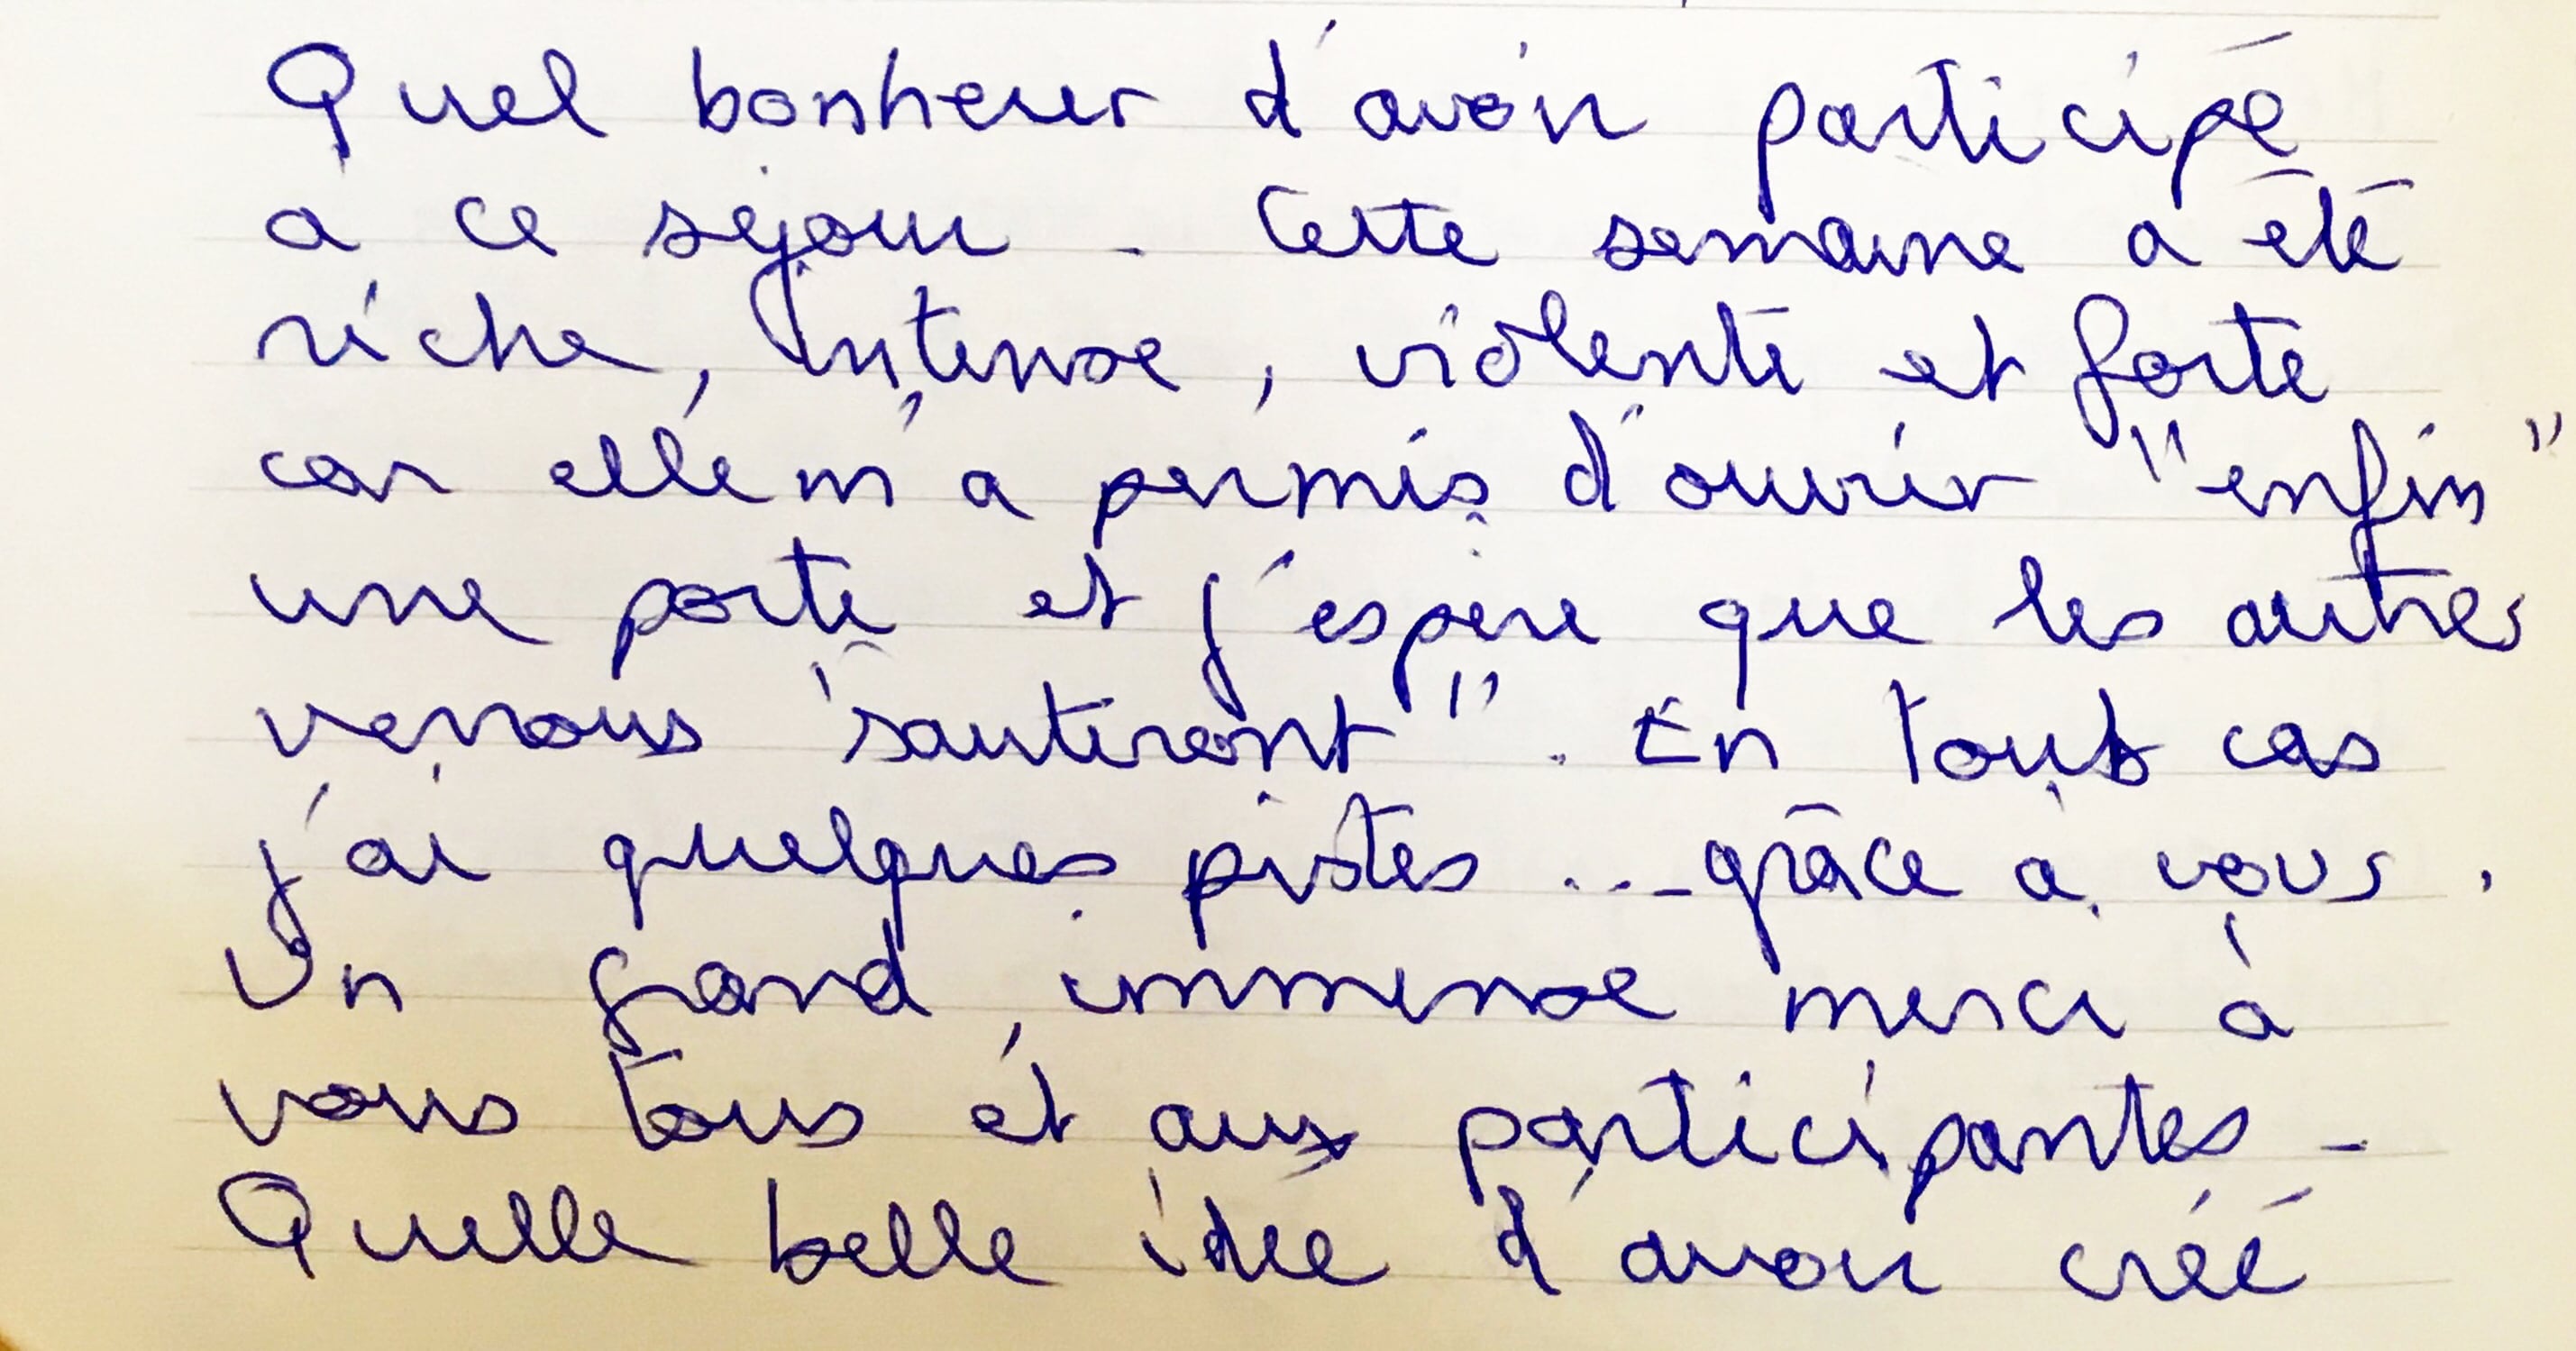 Quel bonheur d'avoir participé
à ce séjour. Cette semaine a été
riche, intense, violente et forte
car elle m'a permis d'ouvrir "enfin"
une porte et j'espère que les autres
verrous "sauteront". En tout cas
j'ai quelques pistes ... grâce à vous.
Un grand, immense merci à
vous tous et aux participantes -
Quelle belle idée d'avoir créé